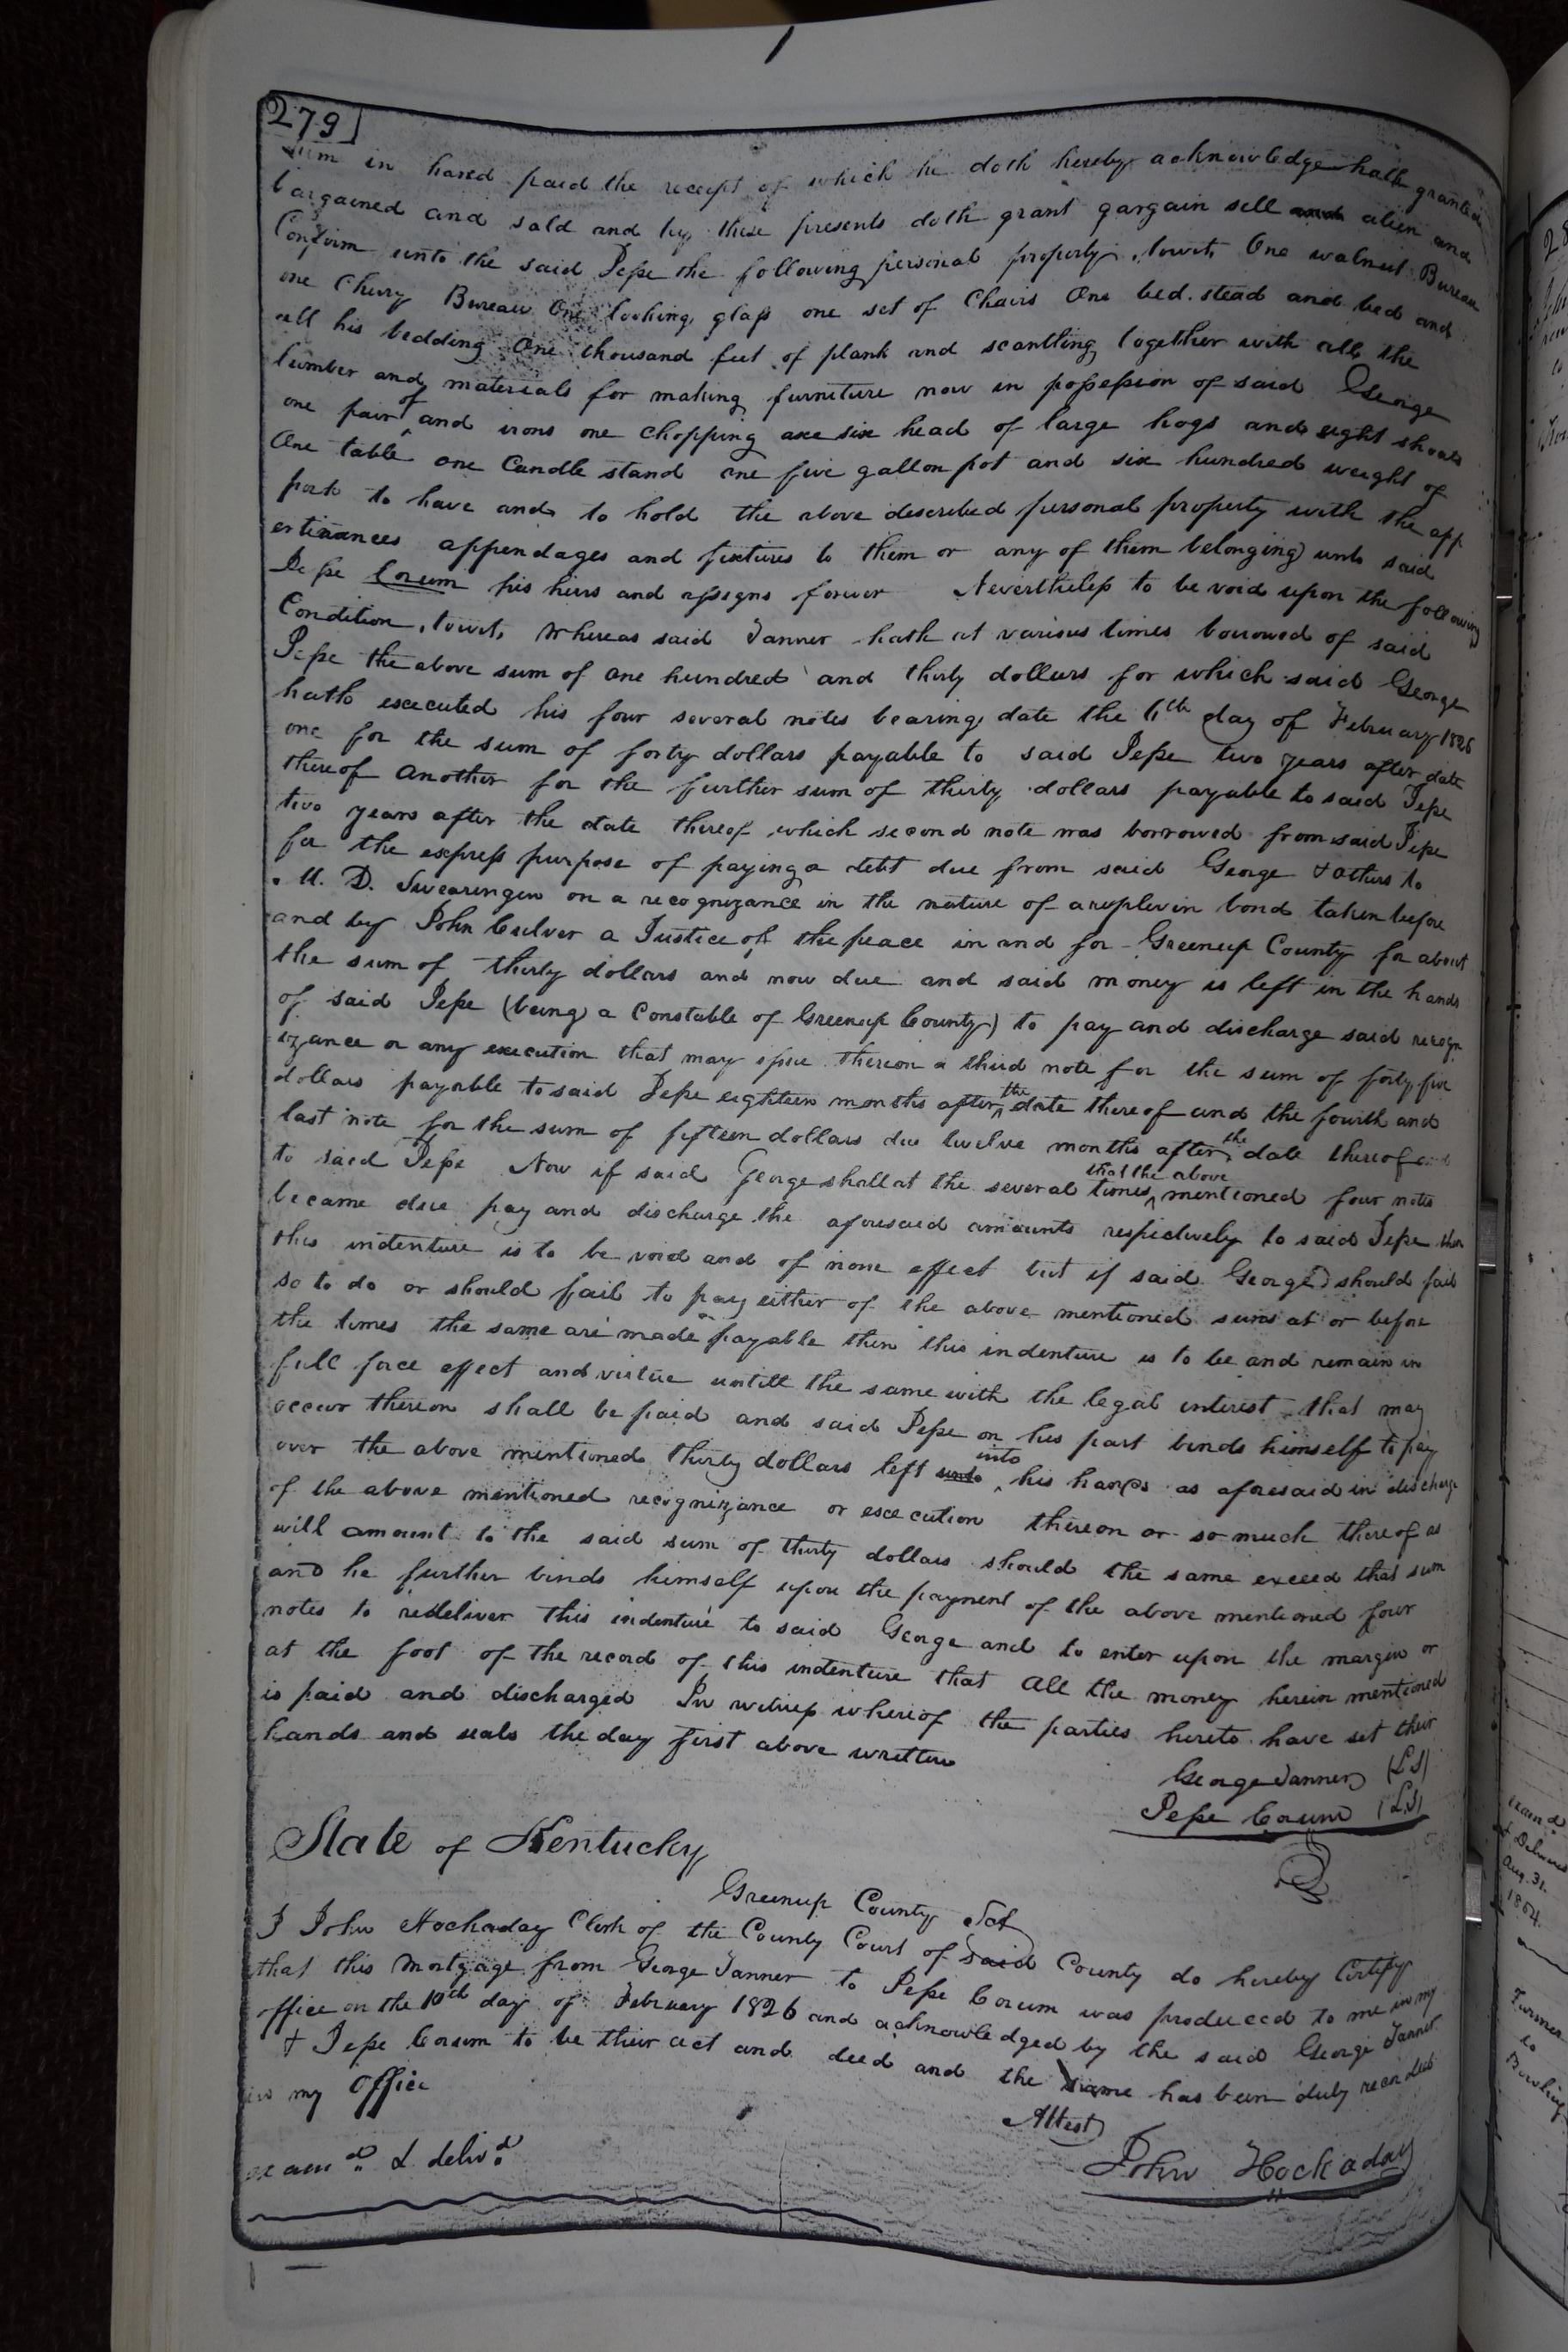 279
Sum in hand paid the receipt of which he doth hereby acknowledge hath granted
bargained and sold and by these presents doth grant gargain sell and alien and
Confirm unto the said Jesse the following personal property, towit, One walnut Bureau
one Cherry Bureau One looking glass one set of Chairs One bed. stead and bed and
all his bedding One thousand feet of plank and scantling together with all the
lumber and materials for making furniture now in possession of said George
one pair of and irons one chopping axe six head of large hogs and eight shoats
One table one Candle stand one five gallon pot and six hundred weight of
pork to have and to hold the above described personal property with the app
ertinances appendages and fixtures to them or any of them belonging unto said
Jesse Corum his heirs and assigns forever Nevertheless to be void upon the following
Condition, towit, Whereas said Tanner hath at various times borrowed of said
Jesse the above sum of one hundred and thirty dollars for which said George
hath executed his four several notes bearing date the day of February 1826
one for the sum of forty dollars payable to said Jesse two years after date
thereof another for the further sum of thirty dollars payable to said Jesse
two years after the date thereof which second note was borrowed from said Jesse
for the express purpose of paying a debt due from said George & others to
M. D. Swearingen on a recognizance in the nature of a replevin bond taken before
and by John Culver a Justice of the peace in and for Greenup County for about
the sum of thirty dollars and now due and said money is left in the hands
of said Jesse (being a Constable of Greenup County) to pay and discharge said recogn
izance or any execution that may issue thereon a third note for the sum of forty five
dollars payable to said Jesse eighteen months after the date thereof and the fourth and
last note for the sum of fifteen dollars due twelve months after the date thereof and
to said Jesse Now if said George shall at the several times that the above mentioned four notes
became due pay and discharge the aforesaid amounts respectively to said Jesse then
this indenture is to be void and of none effect but if said George should fail
so to do or should fail to pay either of the above mentioned sums at or before
the times the same are made payable then this indenture is to be and remain in
full force effect and virtue untill the same with the legal interest that may
occur thereon shall be paid and said Jesse on his part binds himself to pay
over the above mentioned thirty dollars left unto into his hands as aforesaid in discharge
of the above mentioned recognizance or execution thereon or so much thereof as
will amount to the said sum of thirty dollars should the same exceed that sum
and he further binds himself upon the payment of the above mentioned four
notes to redeliver this indenture to said George and to enter upon the margin or
at the foot of the record of this indenture that all the money herein mentioned
is paid and discharged In witness whereof the parties hereto have set their
hands and seals the day first above written
George Tanner (LS)
Jesse Corum (LS)
State of Kentucky
Greenup County Sct
I John Hockaday Clerk of the County Court of said County do hereby Certify
that this Mortgage from George Tanner to Jesse Corum was produced to me in my
office on the 10th day of February 1826 and acknowledged by the said George Tanner
& Jesse Corum to be their act and deed and the same has been duly recorded
in my Office
Attest
John Hockaday
examd. & delivd.
28
exam d.
& Delivered
Aug. 31.
1804.
Turner
to
Bowling